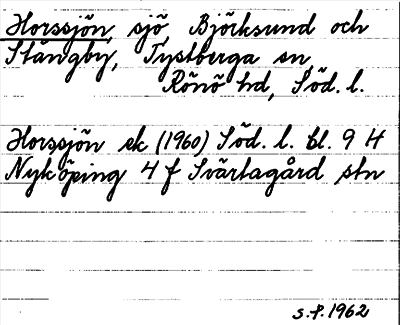 Horssjön, sjö, Björksund och
Stängby, Tystberga sn,
Rönö hd, Söd. l.
Horssjön ek (1960) Söd. l. bl. 9 H
Nyköping 4 f Svärtagård stn
S.P. 1962